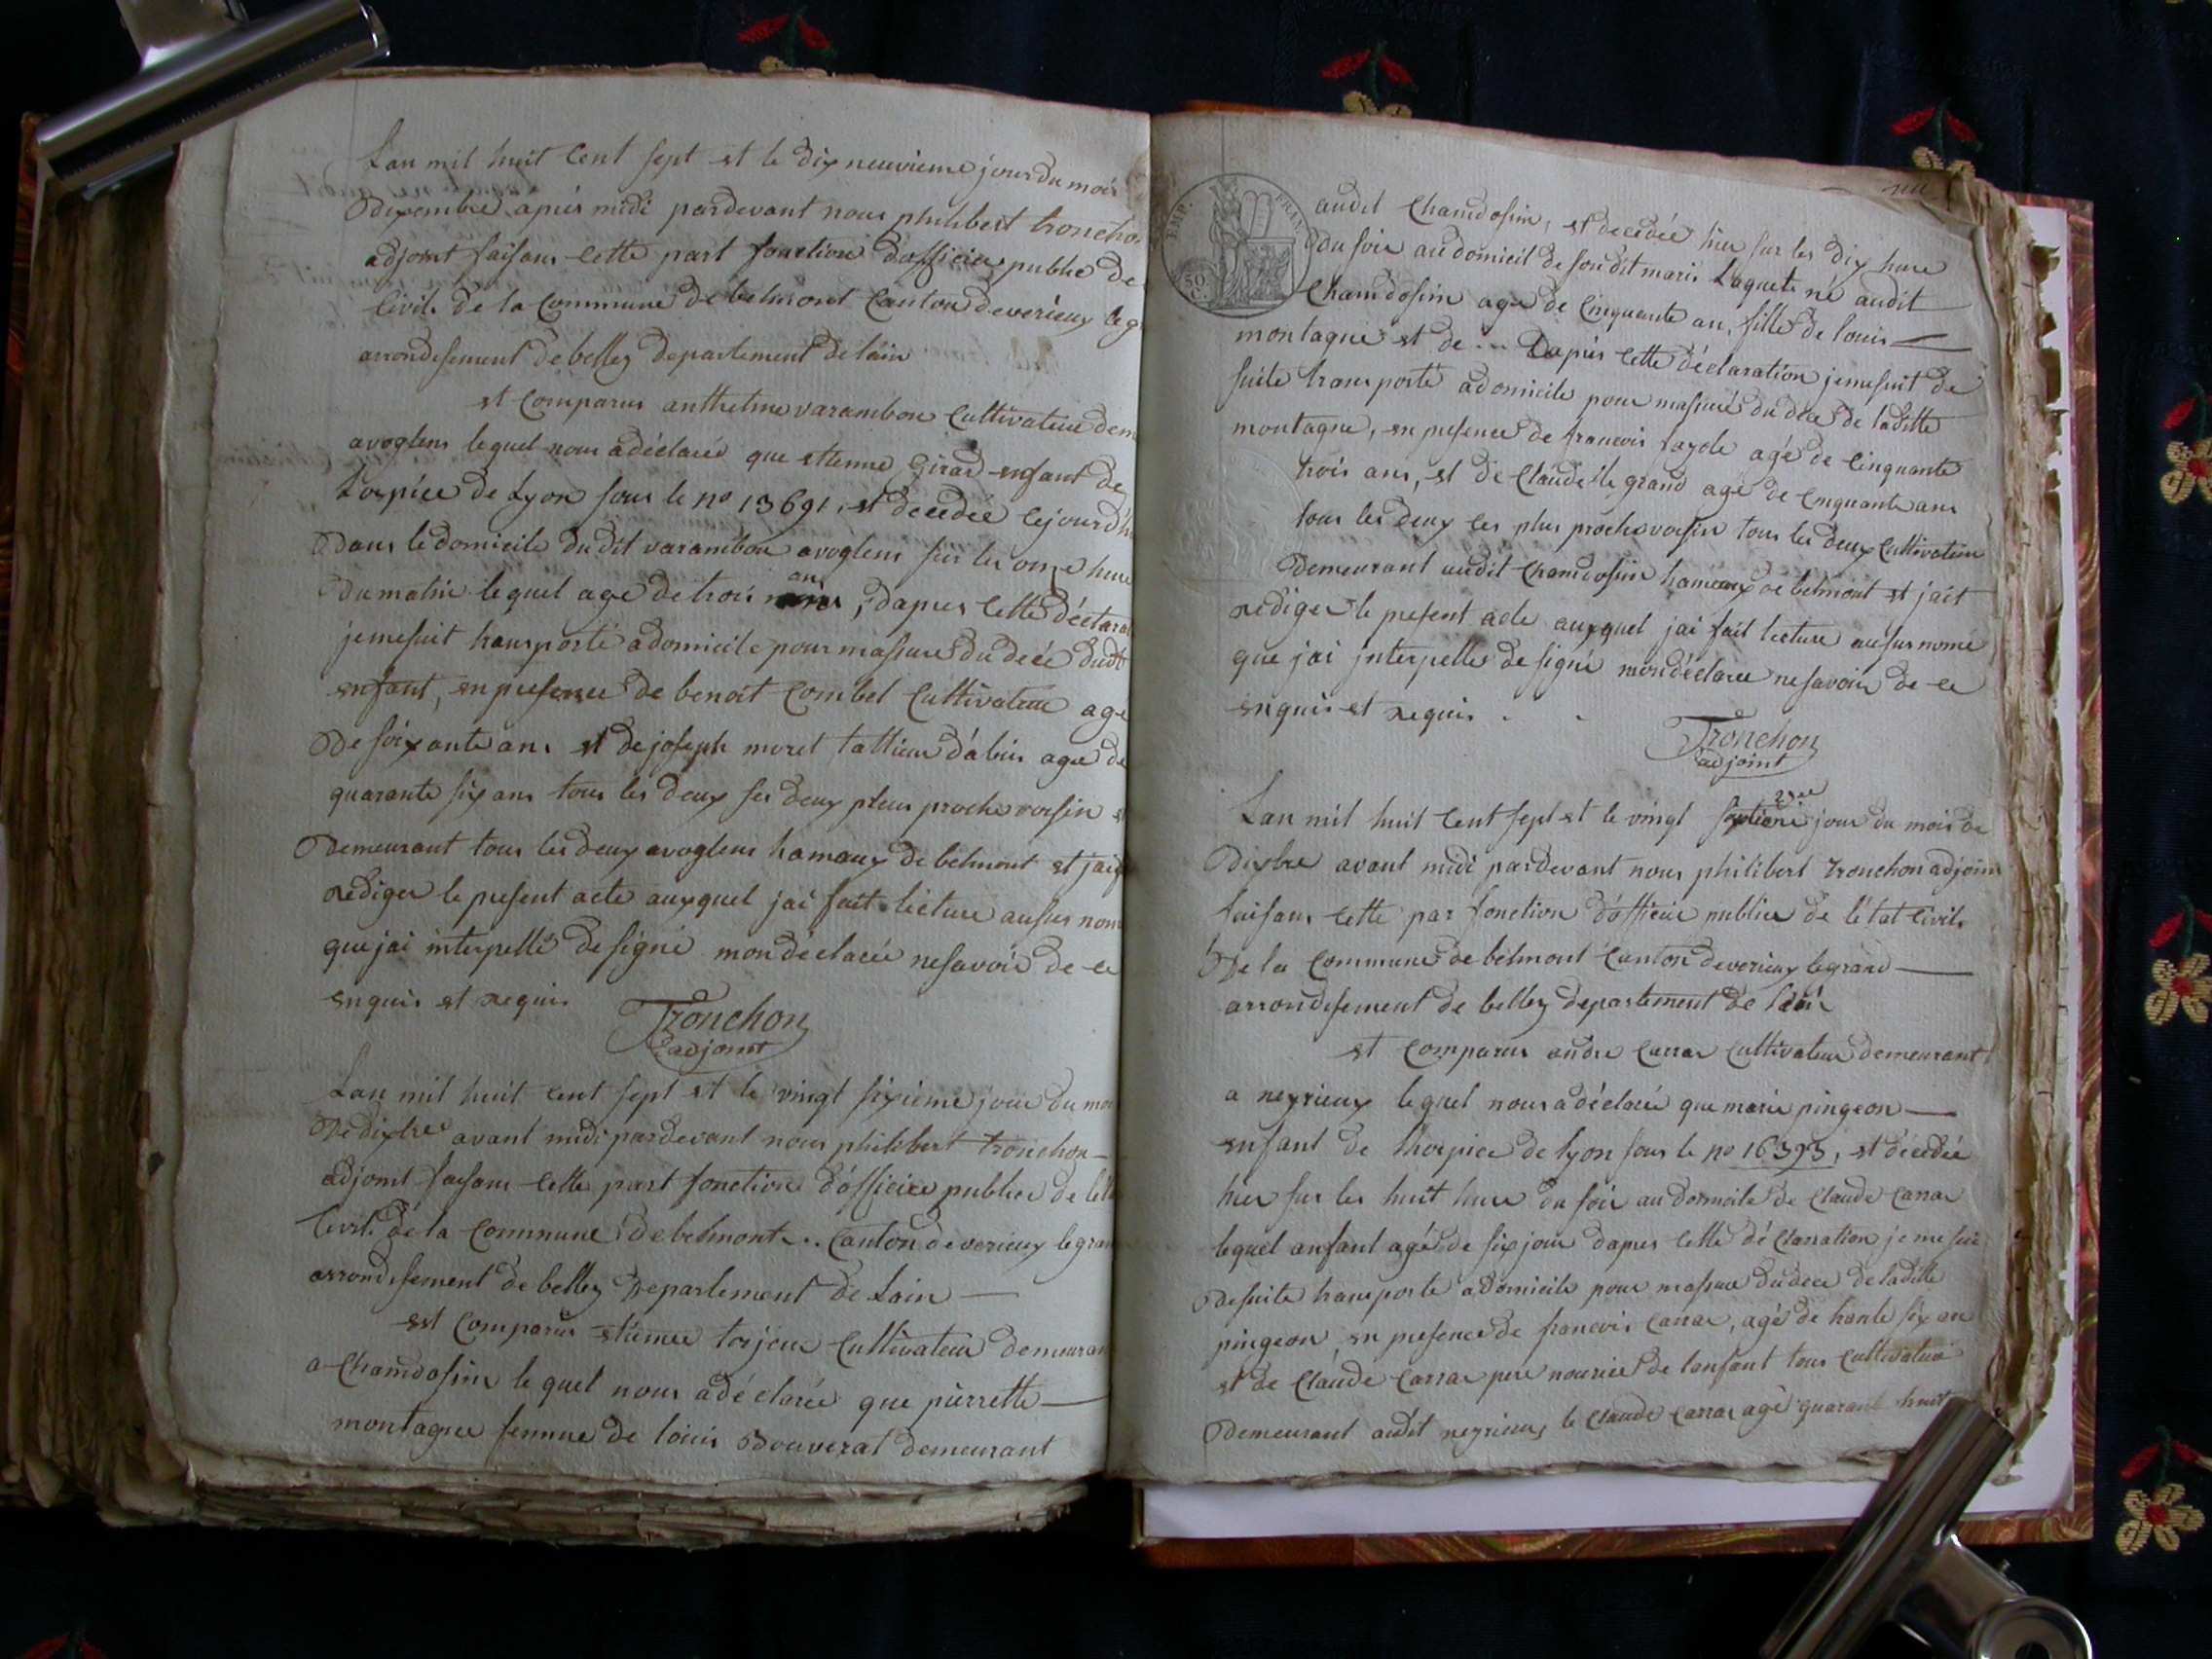 Lan mil huit Cent sept et le dix neuvieme jour du mois
Dixembre apiès midi pardevant nous philibert tronchon
adjoint faisans cette part fonction d'officier public de
Civil. De la Commune de belmont Canton de verieux leg
arrondisement de belley departement de lain
et Comparus anthelme varambon Cultivateur dem
avoglens lequel nous a déclaréé que etienne Girard enfant de
Lospice de Lyon sous le no 13691, et décédée cejourd'h
Dans le domicile du dit varambon avoglens sur les onze hure
Du matin lequel age de trois ans, dapres cette déclara
jemesuit transporté a domicile pour massure du décé dudt
enfant, en presence de benoit Combet Cultivateur age
De soixante ans et de joseph moret tallieur d'abis agee de
quarante six ans tous les deux ses deux pleus proche voisin et
Demeurant tous les deux avoglens hamaux de belmont et jai f
rediger le present acte auxquel jai fait lecture ausus nom
que jai interpellé de signé mon declaréé nesavoir de ce
enquis et requis
Tronchon
adjoint
Lan mil huit cent sept et le vingt sixieme jour du mo
De dixbre avant midi pardevant nous philibert tronchon
adjoint faisans cette part fonction d'officier publiee de lét
Civil. de la Commune de belmont .. Canton de verieux legran
arrondisement de belley Departement de Lain
est Comparus etiennee torjeux Cultivateur demeuran
a Chamdosin lequel nous a déclarée que pierrette
montagnee femme de louis Douverat demeurant
nu
EMP. FRAN.
50 C.
audit Chamdosin, et decedée hier sur les dix hure
du soir au domicil de son dit maris Laquete né audit
Chamdosin agee de Cinquante an, fille de louis
montagne et de ... Dapiés cette déclaration jemesuit de
suite transporté a domicile pour massuré du déce de laditte
montagne, en presence de francois fayole agé de Cinquante
trois ans, et de Claude le grand age de Cinquante ans
tous les deux les plus proche voisin tous les deux Cultivateur
Demeurant audit Chamdosin hameaux de belmont et jait
rediger le present acte auxquel jai fait lecture ausus nomé
que jai jnterpelle de signé mon déclaree nesavoir de ce
enquis et requis . .
Tronchon
adjoint
Lan mil huit Cent sept et le vingt septieme jour du mois de
Dixbre avant midi pardevant nous philibert tronchon adjoint
faisans cette par fonction d'officier publiee de létat Civil.
De la Commune de belmont Canton de verieux legrand
arrondisement de belley departement de lain
et Comparus andre Carrar Cultivateur demeurant
a neyrieux lequel nous a déclaréé que marie pingeon
enfant de lhospice de lyon sous le no 16393, et décédée
hier sur les huit hure du soir au domicile de Claude Carrar
lequel anfant agé de six jour dapres cette dé Clarration je me sui
desuite transporte a domicile pour massure du dece de laditte
pingeon, en presence de francois Carrar, agé de trante six an
et de Claude Carrar pere nouriee de lanfant tous Cultivateur
Demeurant audit neyrieux le Claude Carrar agé quarante huit